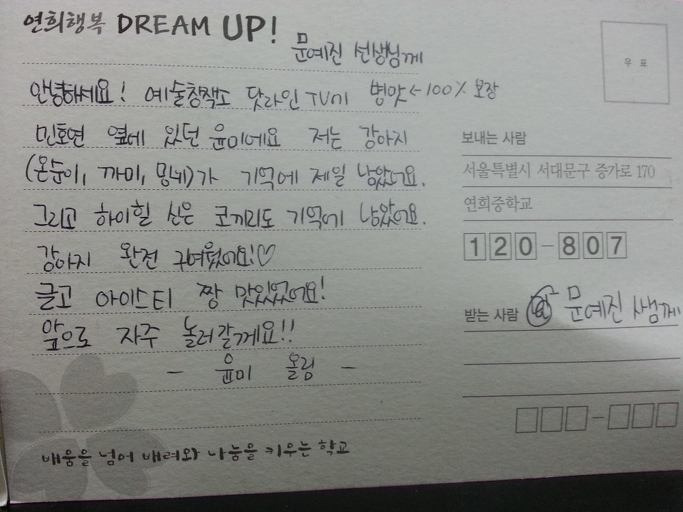 연희행복 DREAM UP!
문예진 선생님께
안녕하세요! 예술창작소 닷라인TV에 병맛←100% 보장
민호연 옆에 있던 윤미에요 저는 강아지
(온순이, 까미, 밍뉘)가 기억에 제일 남았어요.
그리고 하이힐 신은 코끼리도 기억에 남았어요.
강아지 완전 귀여웠어요!♡
글고 아이스티 짱 맛있었어요!
앞으로 자주 놀러갈게요!!
- 윤미 올림 -
배움을 넘어 배려와 나눔을 키우는 학교
우표
보내는 사람
서울특별시 서대문구 증가로 170
연희중학교
120-807
받는 사람 문예진 쌤께